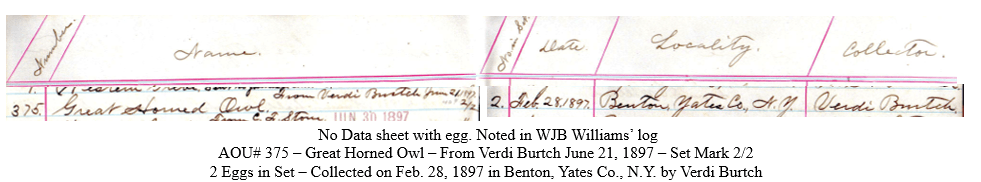 Number. Name. No in Set. Date. Locality. Collector.
From Verdi Burtch June 21, 1897
375. Great Horned Owl. 2/2 2. Feb. 28, 1897. Benton, Yates Co., N.Y. Verdi Burtch
JUN 30 1897
No Data sheet with egg. Noted in WJB Williams’ log
AOU# 375 – Great Horned Owl – From Verdi Burtch June 21, 1897 – Set Mark 2/2
2 Eggs in Set – Collected on Feb. 28, 1897 in Benton, Yates Co., N.Y. by Verdi Burtch